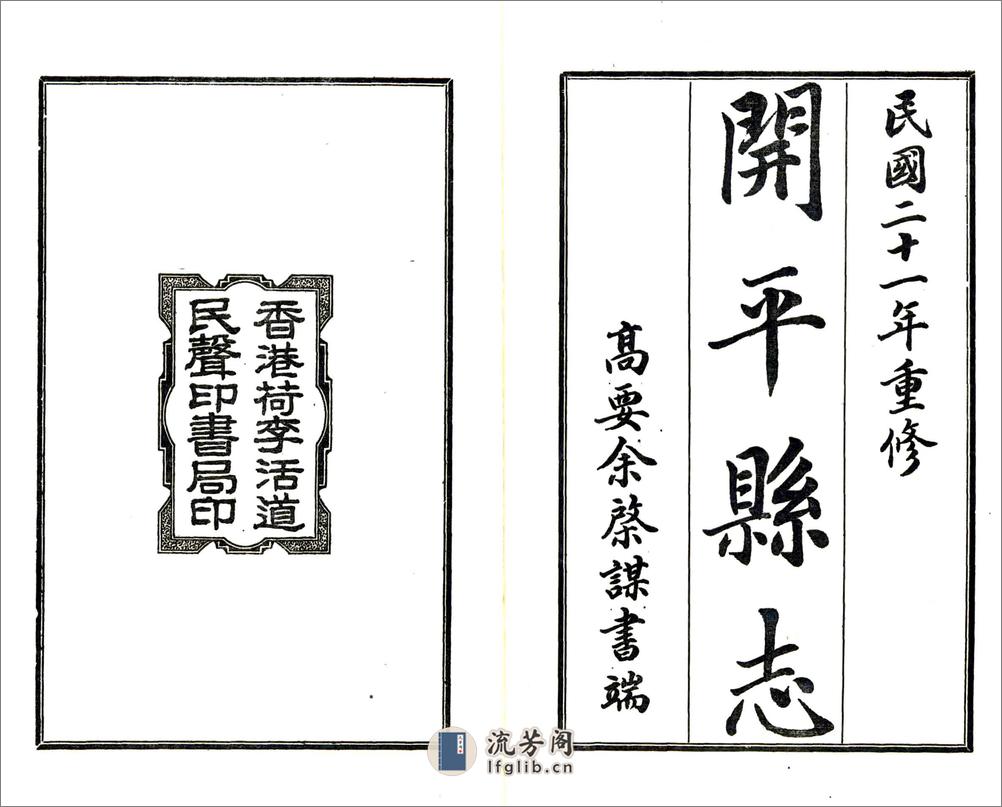 民國二十一年重修
開平縣志
高要余棨謀書端
香港荷李活道
民聲印書局印
流芳阁
lfglib.cn